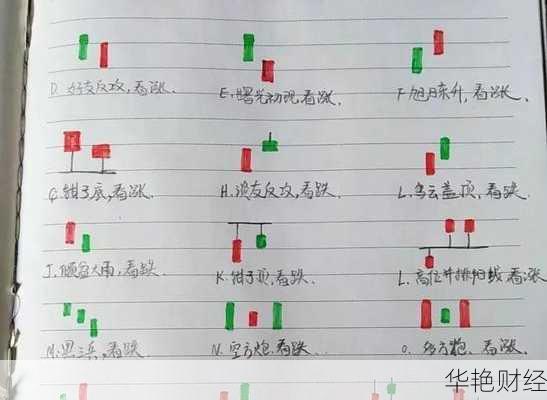 D. 好友反攻,看涨.
E. 曙光初现,看涨.
F. 旭日东升,看涨.
G. 钳子底,看涨.
H. 淡友反攻,看跌.
L. 乌云盖顶,看跌.
J. 倾盆大雨,看跌.
K. 钳子顶,看跌.
L. 高位并排阳线 看涨
M. 黑三兵,看跌
N. 空方炮.看跌.
O. 多方炮.看涨.
华艳财经